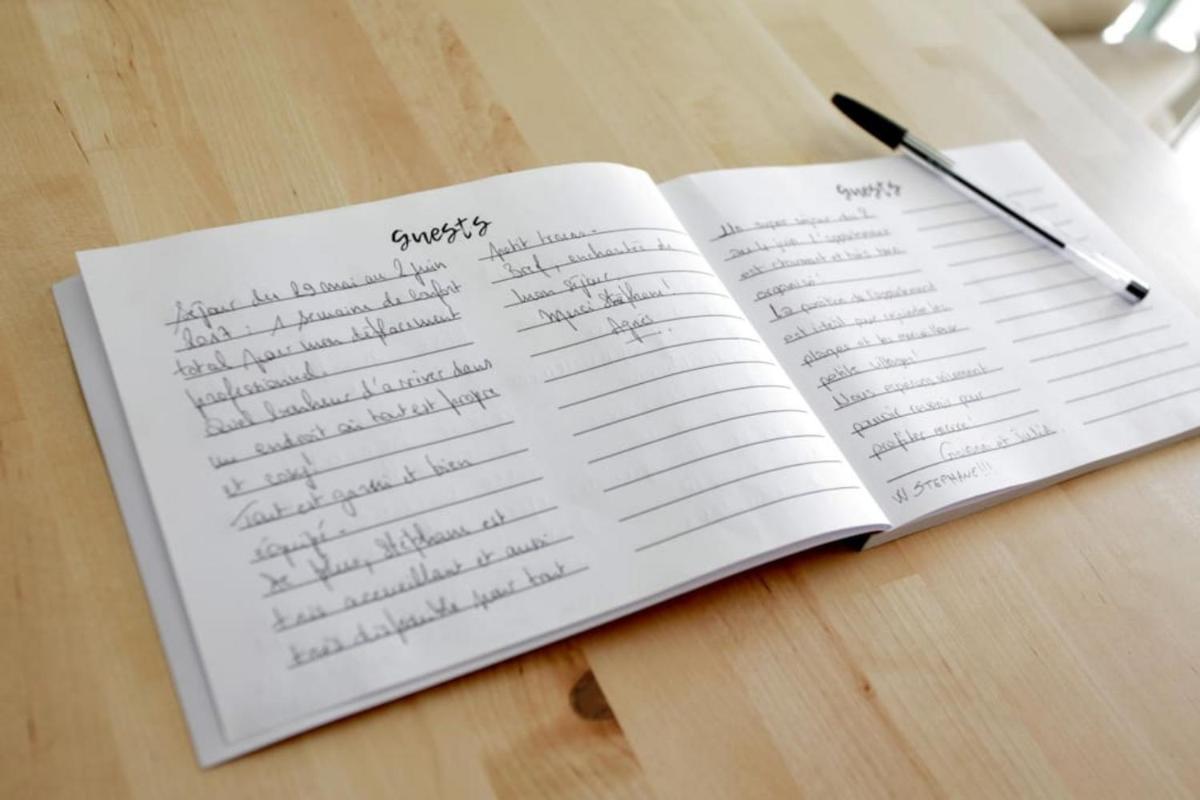 guests
Séjour du 29 mai au 2 juin
: 1 semaine de confort
total pour mon déplacement
professionnel.
Quel bonheur d'arriver dans
un endroit où tout est propre
et cosy!
Tout est garni et bien
équipé.
De plus, Stéphane est
très accueillant et aussi
très disponible pour tout
petit
Bref, enchantée de
mon séjour.
Merci Stéphane!
Agnès.
guests
Un super séjour du 2
au 4 juin. L'appartement
est charmant et très bien
organisé!
La position de l'appartement
est idéale pour rejoindre les
plages et les merveilleux
petits villages!
Nous espérons vraiment
pouvoir revenir pour
profiter encore!
et Julia
W STEPHANE!!!